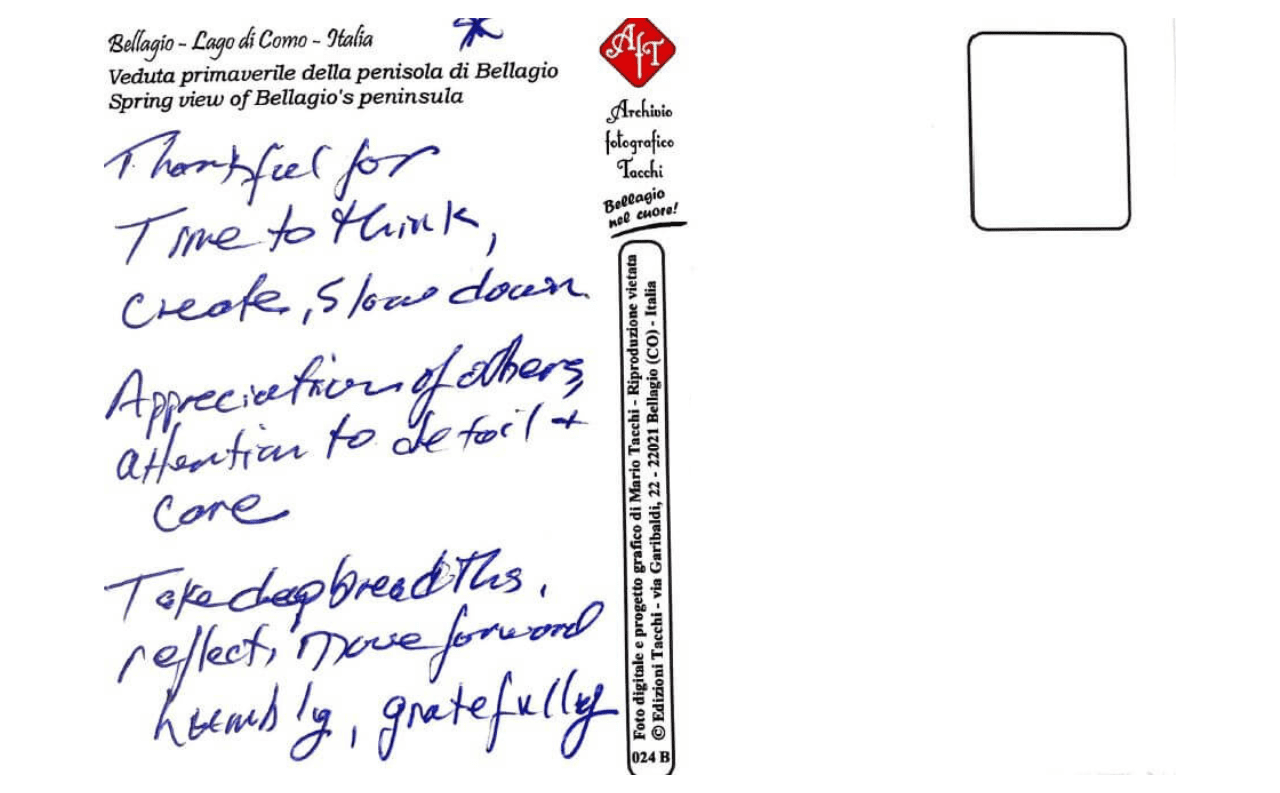 Bellagio - Lago di Como - Italia
Veduta primaverile della penisola di Bellagio
Spring view of Bellagio's peninsula
Thankful for
Time to think,
create, slow down.
Appreciation of others,
attention to detail +
care
Take deep breadths,
reflect, move forward
humbly, gratefully
AfT
Archivio
fotografico
Tacchi
Bellagio
nel cuore!
Foto digitale e progetto grafico di Mario Tacchi - Riproduzione vietata
© Edizioni Tacchi - via Garibaldi, 22 - 22021 Bellagio (CO) - Italia
024 B